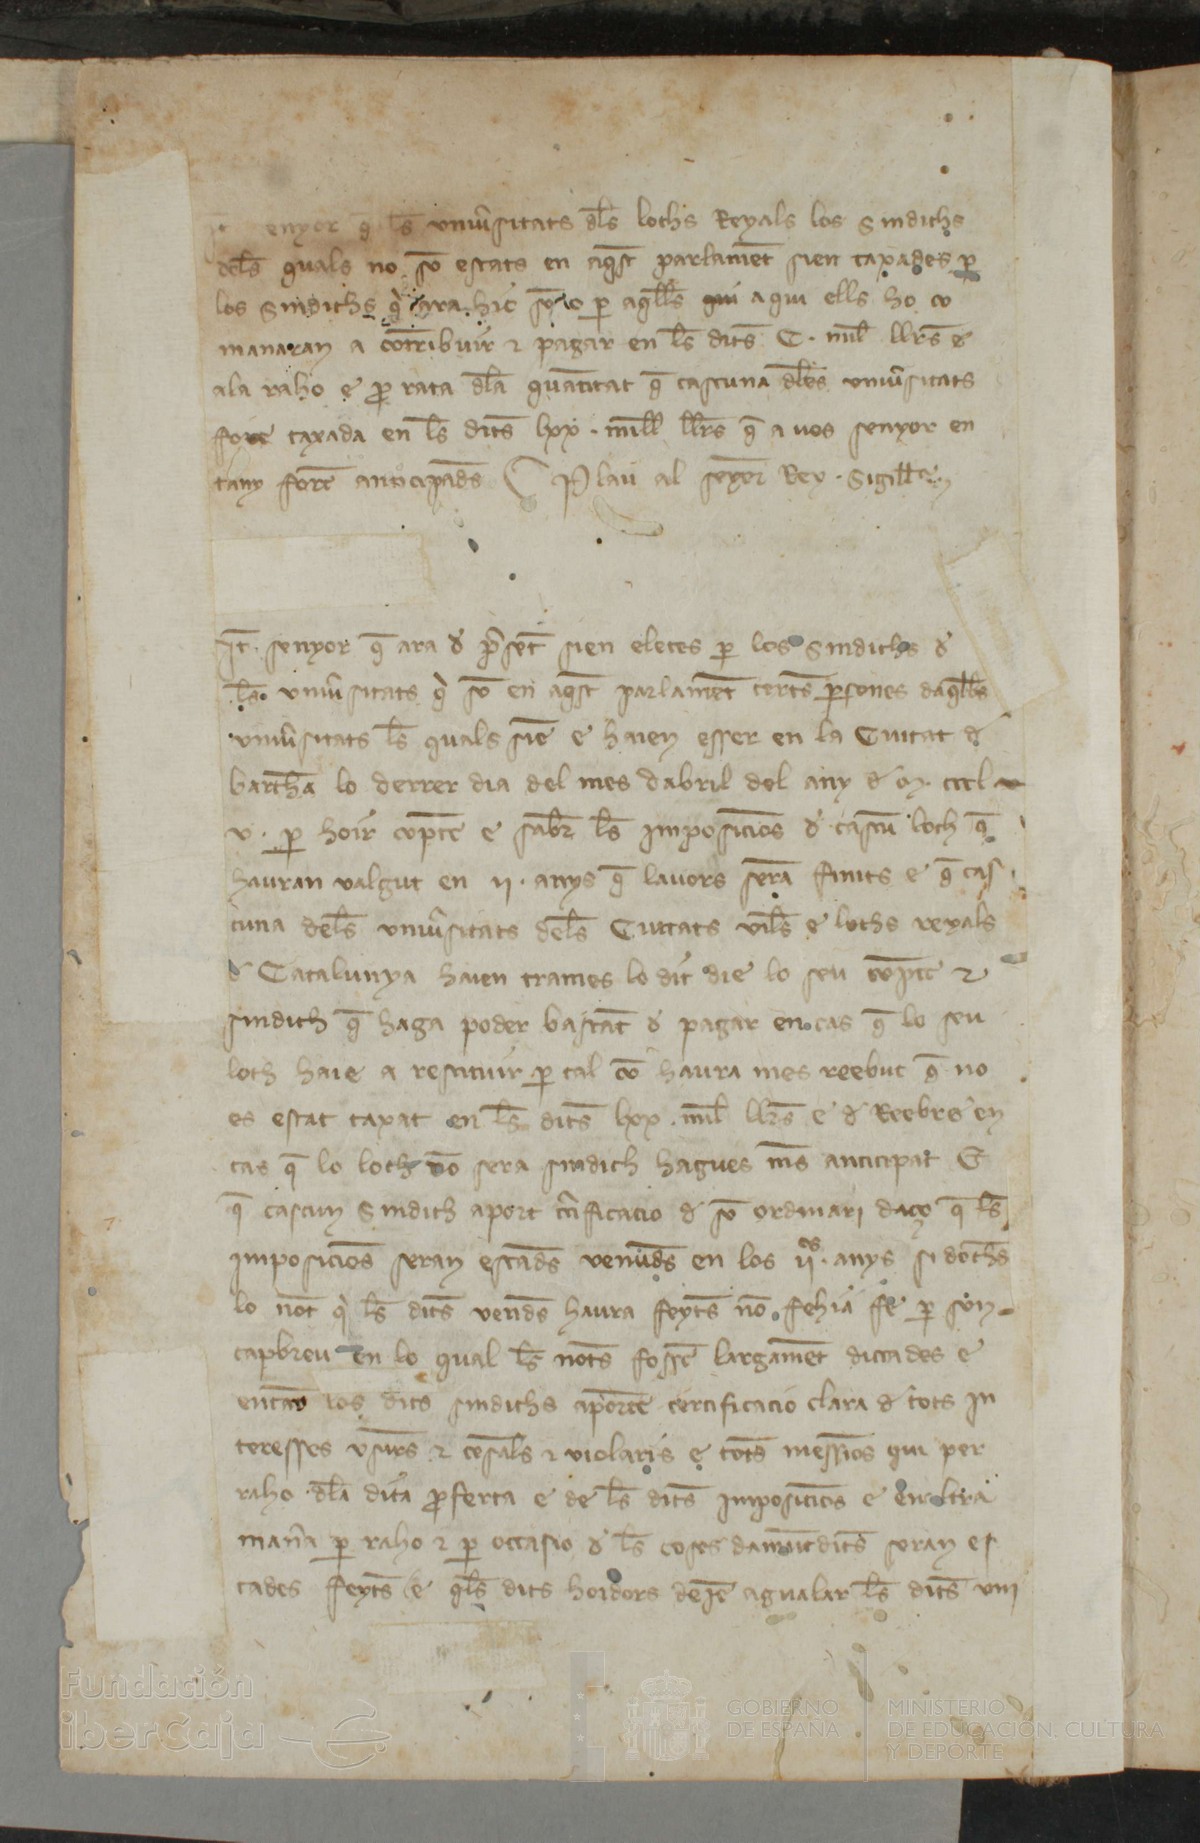 It senyor q̄ ls̄ uniũsitats dls̄ lochs Reyals los Sindichs
dels̄ quals no sō estats en aq̄st parlamēt sien taxades p̱
los Sindichs q̇ ara hic sō o p̱ aqlls̄ a qui ells ho co
manaran a cōtribuir ⁊ pagar en ls̄ dits̄ C. mil̄ llrs̄ e
ala raho e ꝓ rata dl̄a quātitat q̄ cascuna dls̄ uniũsitats
fore taxada en ls̄ dits̄ lxx. mill̄ llrs̄ q̄ a vos senyor en
lany forē anticipads̄ Plau al seyor̄ Rey. Sigill̄
It̄. senyor q̄ ara d' p̄sēt sien eletes p̱ los Sindichs d'
ls̄. uniũsitats q̇ sō en aq̄st parlamēt certs̄ p̱sones daqlls̄
uniũsitats ls̄ quals siē e haien esser en la Ciutat d'
barchā lo derrer dia del mes dabril del any d' M. cccl
v. p̱ hoir cōpte e sabr̄ ls̄ imposiciōs d' cascū loch q̄
hauran valgut en ii. anys q̄ lauors serā finits e q̄ cas
cuna dels̄ uniũsitats dels̄ Ciutats vils̄ e lochs reyals
d' Catalunya haien trames lo dit die lo seu cōpte ⁊
sindich q̄ haga poder bastāt d' pagar en cas q̄ lo seu
loch haie a restituir p̱ tal cō haura mes reebut q̄ no
es estat taxat en ls̄ dits̄ lxx. mil̄ llrs̄ e d' Reebre en
cas q̄ lo loch dō sera sindich hagues ms̄ anticipat E
q̄ cascun Sindich aport c̃tificacio d' sō ordinari daço q̄ ls̄
imposiciōs seran estads̄ venuds̄ en los ii.os anys si dōchs
lo not̄ q̇ ls̄ dits̄ vends̄ haura feyts̄ nō fehia fe p̱ son
capbreu en lo qual ls̄ nots̄ fossē largamēt dictades e
encara los dits sindichs aportē certificacio clara d' tots in
teresses usurs̄ ⁊ cēsals ⁊ violaris e tots̄ messiōs qui per
raho dl̄a dita ꝓferta e de ls̄ dits̄ imposiciōs e en altra
man̄a p̱ raho ⁊ p̱ occasio d' ls̄ coses damūtdits̄ seran es
tades feyts̄ e qls̄ dits hoidors degē agualar ls̄ dits̄ uni
Fundación
iberCaja
GOBIERNO
DE ESPAÑA
MINISTERIO
DE EDUCACIÓN, CULTURA
Y DEPORTE